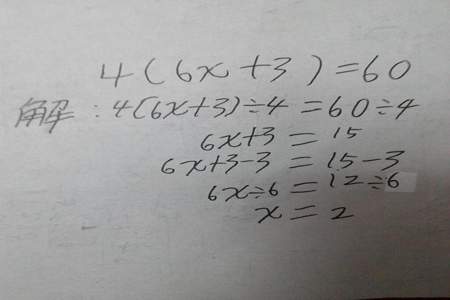 4(6x+3)=60
解:4(6x+3)÷4=60÷4
6x+3=15
6x+3-3=15-3
6x÷6=12÷6
x=2